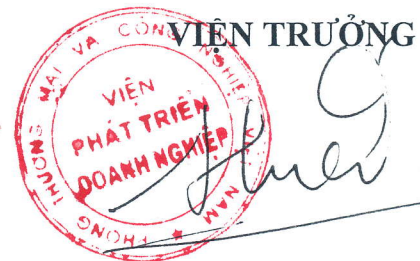 VIỆN TRƯỞNG
PHÒNG THƯƠNG MẠI VÀ CÔNG NGHIỆP VIỆT NAM
VIỆN
PHÁT TRIỂN
DOANH NGHIỆP